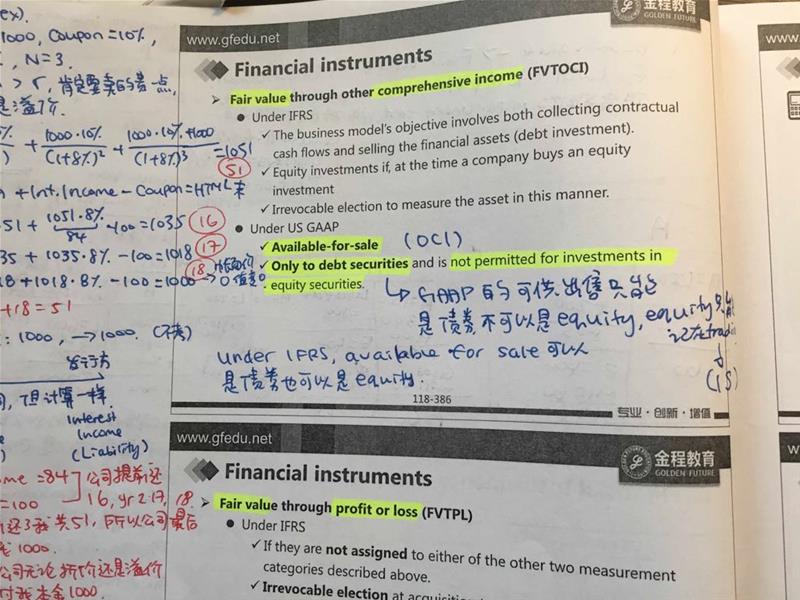 ex).
1000, Coupon=10%,
, N=3.
> r, 肯定要卖的贵一点,
是溢价.
+ 1000·10% / (1+8%)² + 1000·10%+1000 / (1+8%)³ =1051
51
+Int.Income-Coupon=HTML末
51 + 1051·8% -100=1035 16
84
35 + 1035·8% -100=1018 17
18+1018·8% -100=1000 18
+18=51
: 1000, → 1000.
发行方
, 但计算一样.
Interest
Income
(Liability)
me =84 公司提前还
=100 16, yr2:17, 18.
1000.
公司无论折价还是溢价
本金1000.
www.gfedu.net
金程教育
GOLDEN FUTURE
Financial instruments
➢ Fair value through other comprehensive income (FVTOCI)
● Under IFRS
✓ The business model's objective involves both collecting contractual
cash flows and selling the financial assets (debt investment).
✓ Equity investments if, at the time a company buys an equity
investment
✓ Irrevocable election to measure the asset in this manner.
● Under US GAAP
✓ Available-for-sale (OCI)
✓ Only to debt securities and is not permitted for investments in
equity securities.
↳ GAAP的可供出售只能
是债券不可以是equity, equity只能
记在tradi
↓
(IS)
under IFRS, available for sale 可以
是债券也可以是equity.
118-386
专业·创新·增值
www.gfedu.net
金程教育
GOLDEN FUTURE
Financial instruments
➢ Fair value through profit or loss (FVTPL)
● Under IFRS
✓ If they are not assigned to either of the other two measurement
categories described above.
✓ Irrevocable election at acquisiti
www